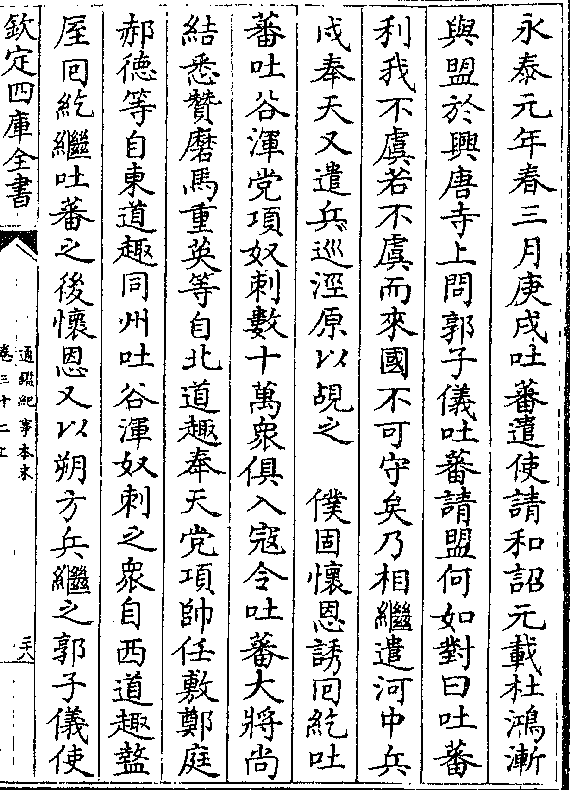 永泰元年春三月庚戌吐蕃遣使請和詔元載杜鴻漸
與盟於興唐寺上問郭子儀吐蕃請盟何如對曰吐蕃
利我不虞若不虞而來國不可守矣乃相繼遣河中兵
戍奉天又遣兵巡涇原以覘之　僕固懷恩誘囘紇吐
蕃吐谷渾党項奴刺數十萬衆俱入寇令吐蕃大將尚
結悉贊磨馬重英等自北道趣奉天党項帥任敷鄭庭
郝德等自東道趣同州吐谷渾奴刺之衆自西道趣盩
厔囘紇繼吐蕃之後懷恩又以朔方兵繼之郭子儀使
欽定四庫全書
通鑑紀事本末
卷三十二上